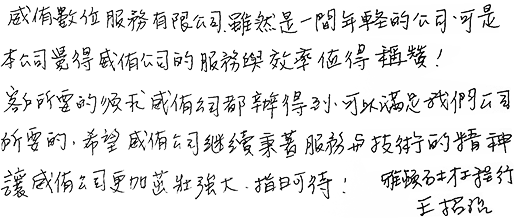 威侑數位服務有限公司雖然是一間年輕的公司,可是
本公司覺得威侑公司的服務與效率值得稱讚!
客戶所要的須求威侑公司都辦得到,可以滿足我們公司
所要的,希望威侑公司繼續秉著服務与技術的精神
讓威侑公司更加茁壯強大,指日可待!
石材行
王